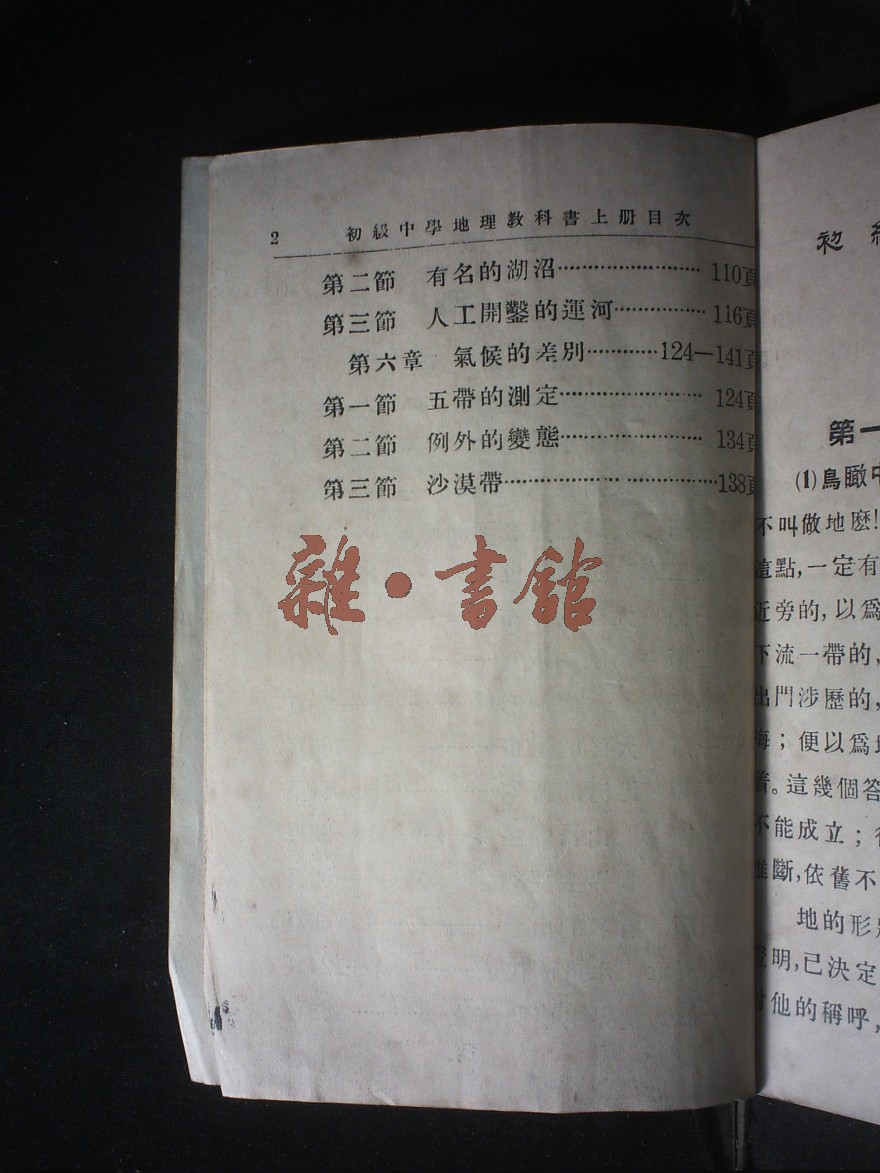 2 初級中學地理教科書上册目次
第二節 有名的湖沼……………………110頁
第三節 人工開鑿的運河……………116頁
第六章 氣候的差別…………124—141頁
第一節 五帶的測定……………………124頁
第二節 例外的變態……………………134頁
第三節 沙漠帶………………………………138頁
雜•書館
初
第一
(1)鳥瞰中
不叫做地麼!
這點,一定有
近旁的,以爲
下流一帶的,
出門涉歷的,
海；便以爲
着。這幾個答
不能成立；
推斷,依舊不
地的形
明,已決定
他的稱呼,